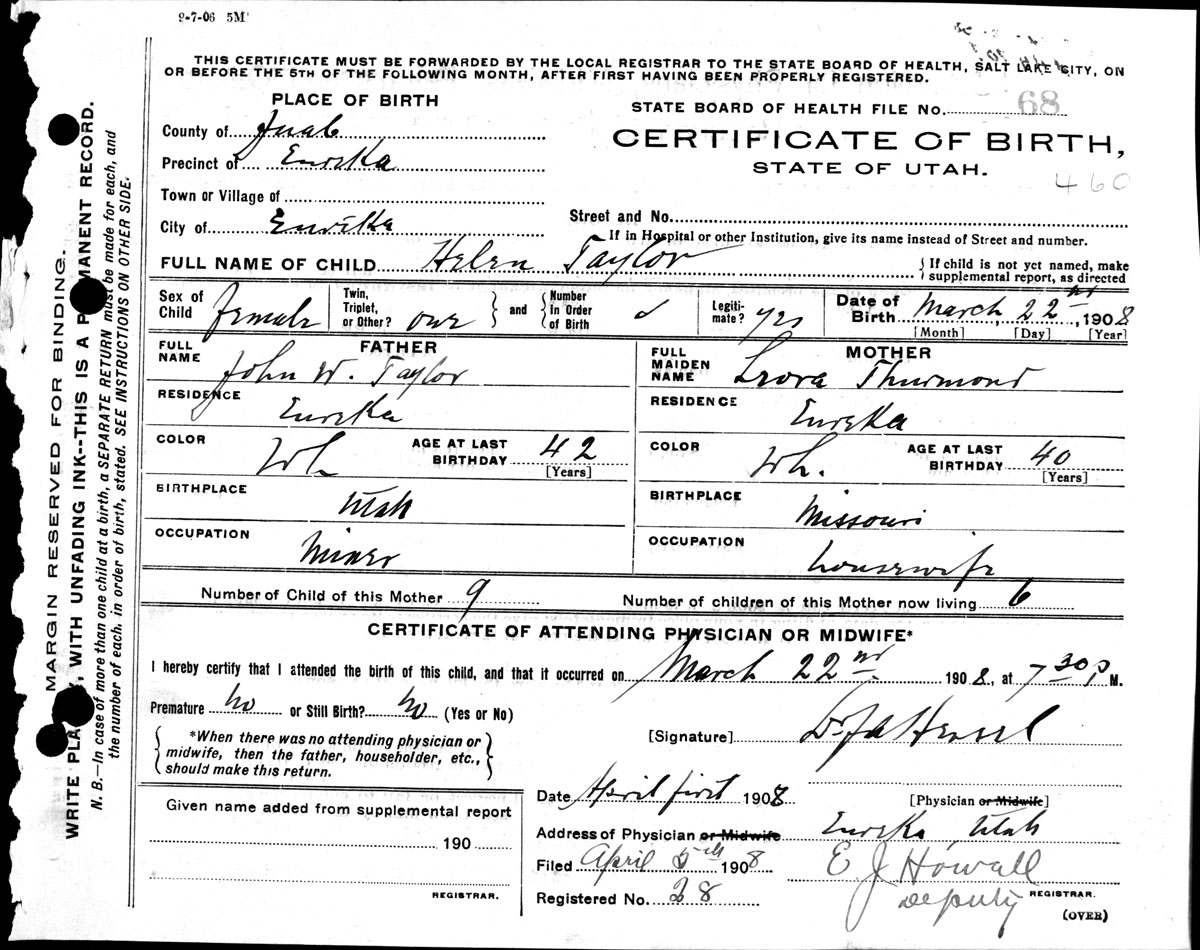 9-7-06 5M
THIS CERTIFICATE MUST BE FORWARDED BY THE LOCAL REGISTRAR TO THE STATE BOARD OF HEALTH, SALT LAKE CITY, ON
OR BEFORE THE 5TH OF THE FOLLOWING MONTH, AFTER FIRST HAVING BEEN PROPERLY REGISTERED.
PLACE OF BIRTH
STATE BOARD OF HEALTH FILE No. 68
County of Juab
CERTIFICATE OF BIRTH,
Precinct of Eureka
STATE OF UTAH.
460
Town or Village of
City of Eureka
Street and No.
If in Hospital or other Institution, give its name instead of Street and number.
FULL NAME OF CHILD Helen Taylor { If child is not yet named, make
supplemental report, as directed
Sex of Child Female
Twin, Triplet, or Other? one } and { Number in Order of Birth
Legiti-mate? yes
Date of Birth March 22nd, 1908
[Month] [Day] [Year]
FATHER
FULL NAME John W. Taylor
RESIDENCE Eureka
COLOR Wh AGE AT LAST BIRTHDAY 42
[Years]
BIRTHPLACE Utah
OCCUPATION Miner
MOTHER
FULL MAIDEN NAME Leora Thurmond
RESIDENCE Eureka
COLOR Wh. AGE AT LAST BIRTHDAY 40
[Years]
BIRTHPLACE Missouri
OCCUPATION housewife
Number of Child of this Mother 9 Number of children of this Mother now living 6
CERTIFICATE OF ATTENDING PHYSICIAN OR MIDWIFE*
I hereby certify that I attended the birth of this child, and that it occurred on March 22nd. 1908, at 7 30 P M.
Premature No or Still Birth? No (Yes or No)
{ *When there was no attending physician or
midwife, then the father, householder, etc.,
should make this return. }
[Signature] Dr
Date April first 1908
[Physician or Midwife]
Address of Physician or Midwife Eureka Utah
Filed April 5th 1908 E J Howall
Deputy REGISTRAR.
Registered No. 28
(OVER)
Given name added from supplemental report
190
REGISTRAR.
MARGIN RESERVED FOR BINDING.
WRITE PLA , WITH UNFADING INK--THIS IS A P MANENT RECORD.
N. B.—In case of more than one child at a birth, a SEPARATE RETURN must be made for each, and
the number of each, in order of birth, stated. SEE INSTRUCTIONS ON OTHER SIDE.